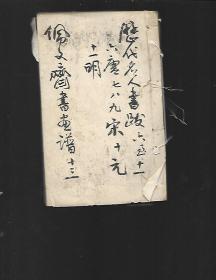 歷代名人書跋六至十一
六唐七八九宋十元
十一明
佩文齋書畫譜十三